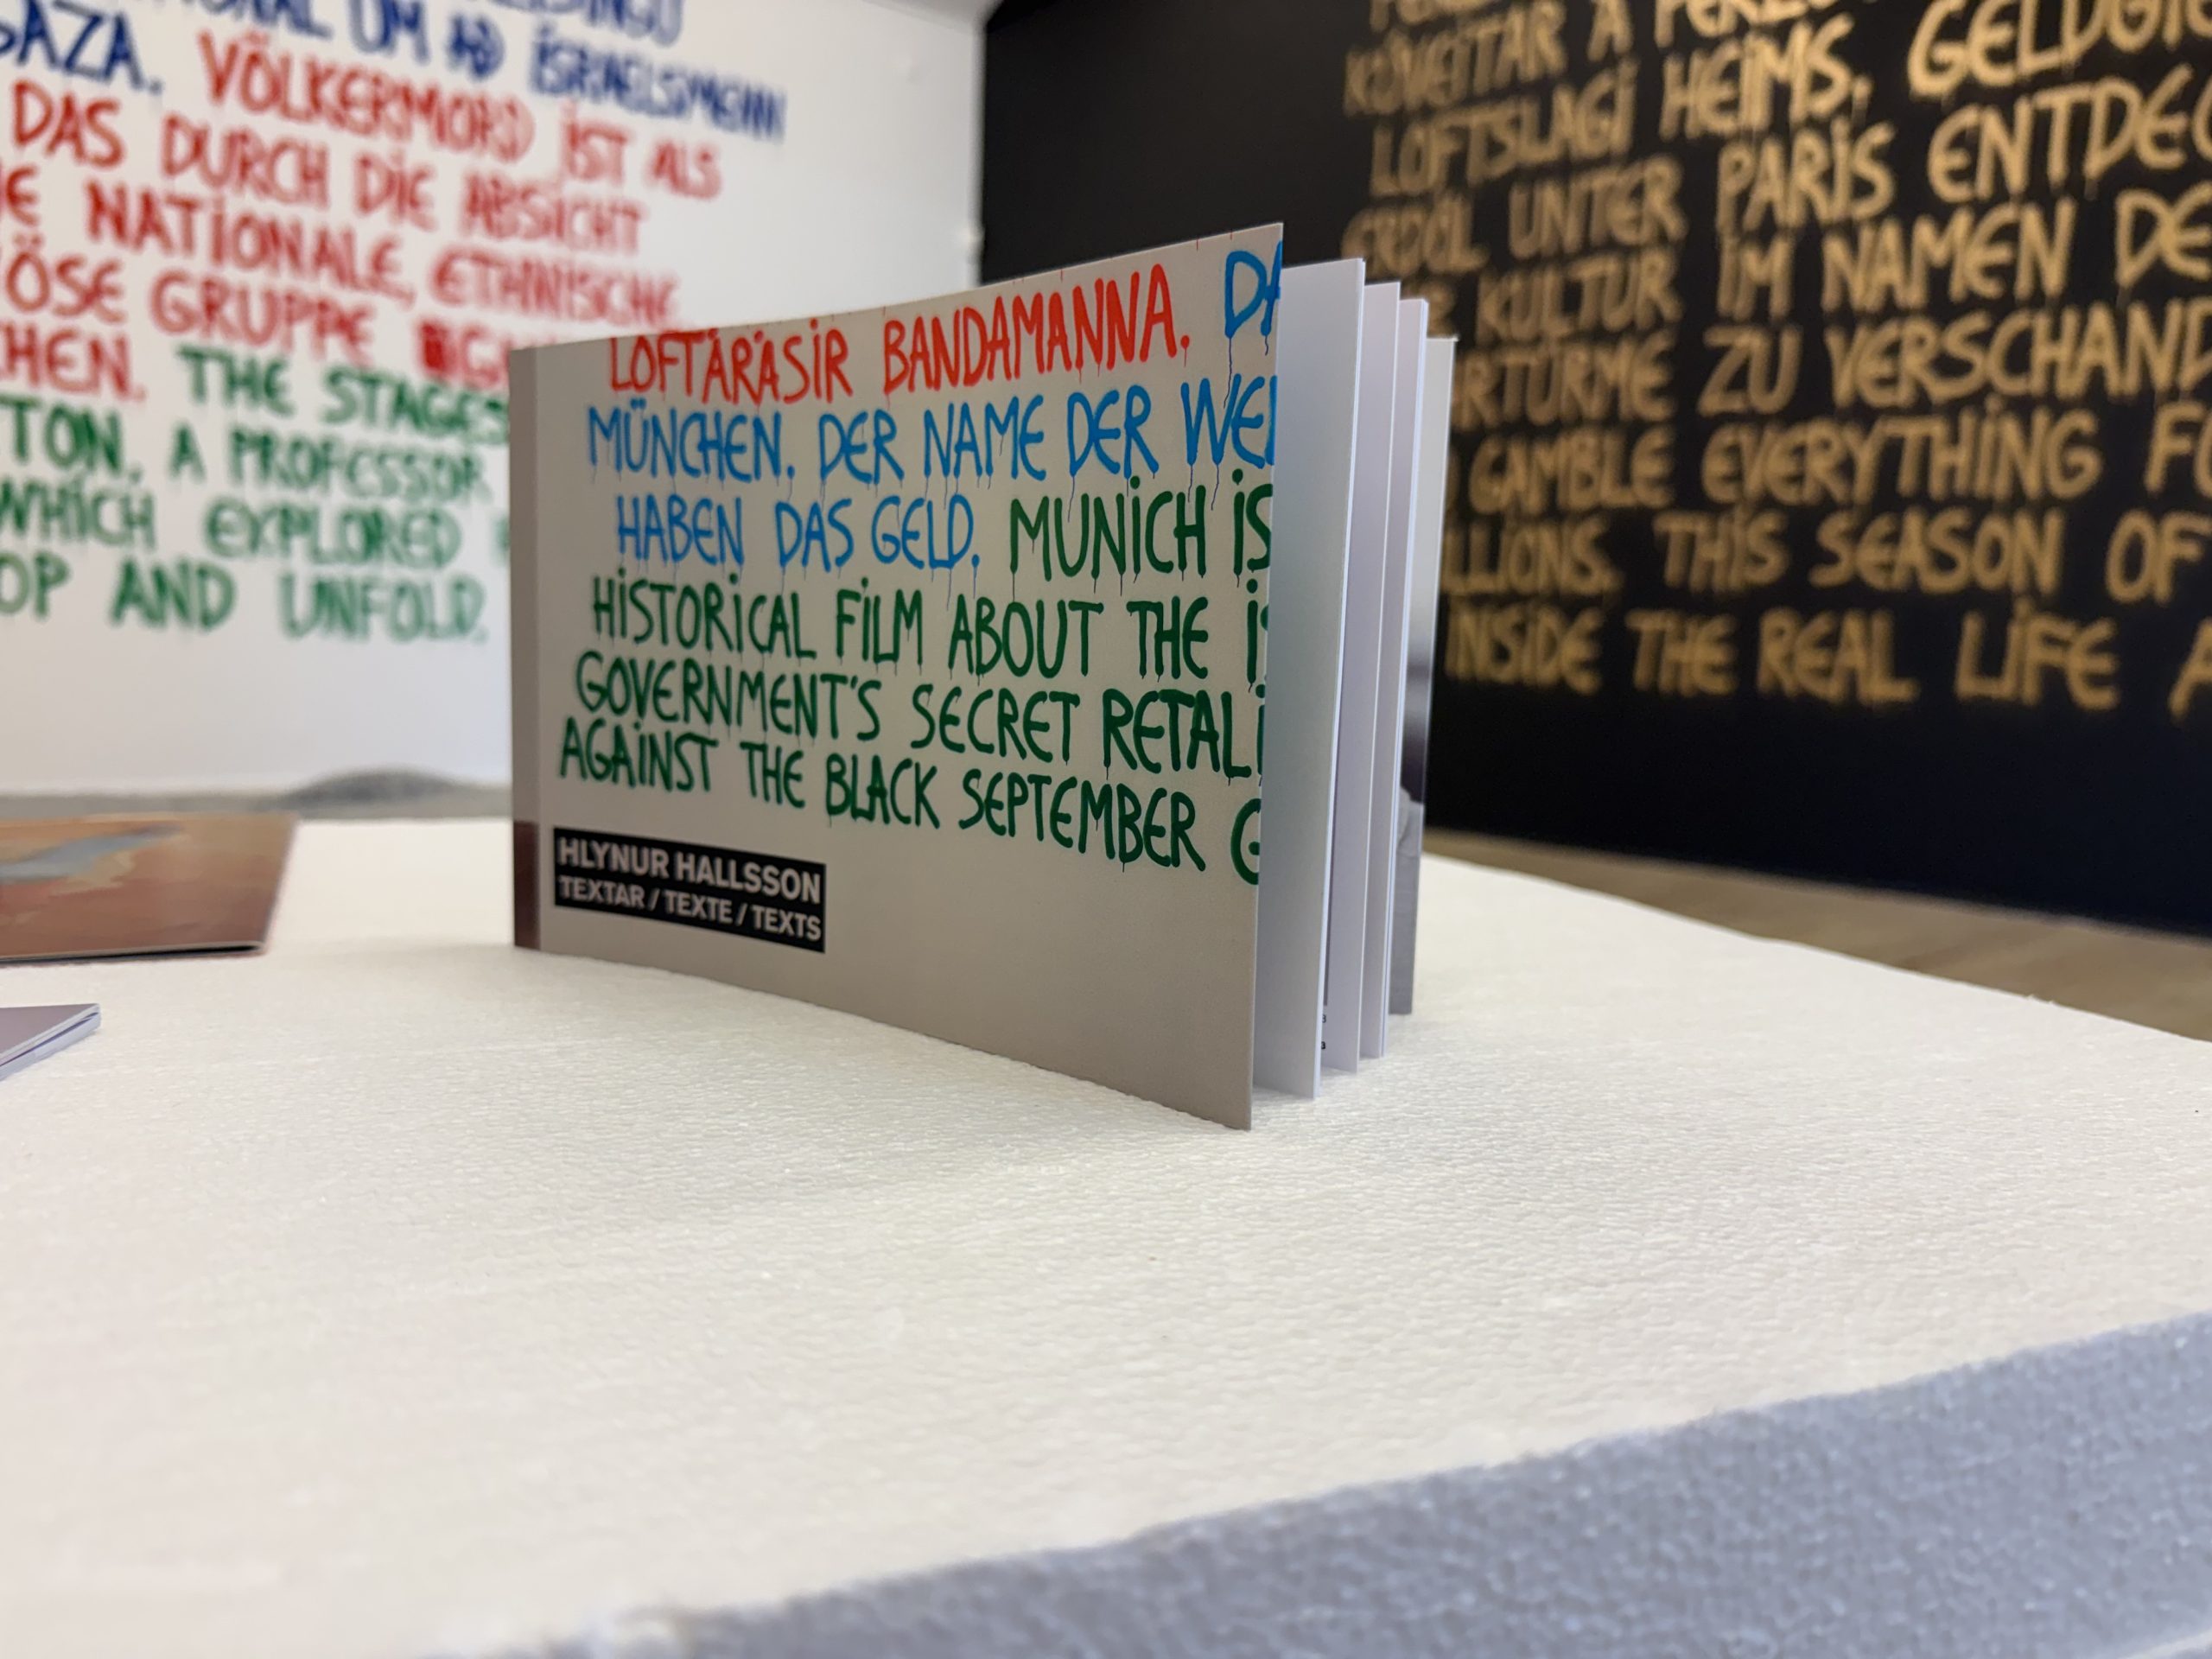 GAZA. UM AÐ ÍSRAELSMENN
VÖLKERMORD IST ALS
DAS DURCH DIE ABSICHT
NATIONALE, ETHNISCHE
GRUPPE
THE STAGES
A PROFESSOR
WHICH EXPLORED
AND UNFOLD.
LOFTÁRÁSIR BANDAMANNA. DA
MÜNCHEN. DER NAME DER WEI
HABEN DAS GELD. MUNICH IS
HISTORICAL FILM ABOUT THE IS
GOVERNMENT'S SECRET RETALI
AGAINST THE BLACK SEPTEMBER G
HLYNUR HALLSSON
TEXTAR / TEXTE / TEXTS
KÚVEITAR Á
LOFTSLAGI HEIMS. GELDGIE
ERDÖL UNTER PARIS ENTDEC
KULTUR IM NAMEN DE
ZU VERSCHAND
GAMBLE EVERYTHING FO
THIS SEASON OF
INSIDE THE REAL LIFE A